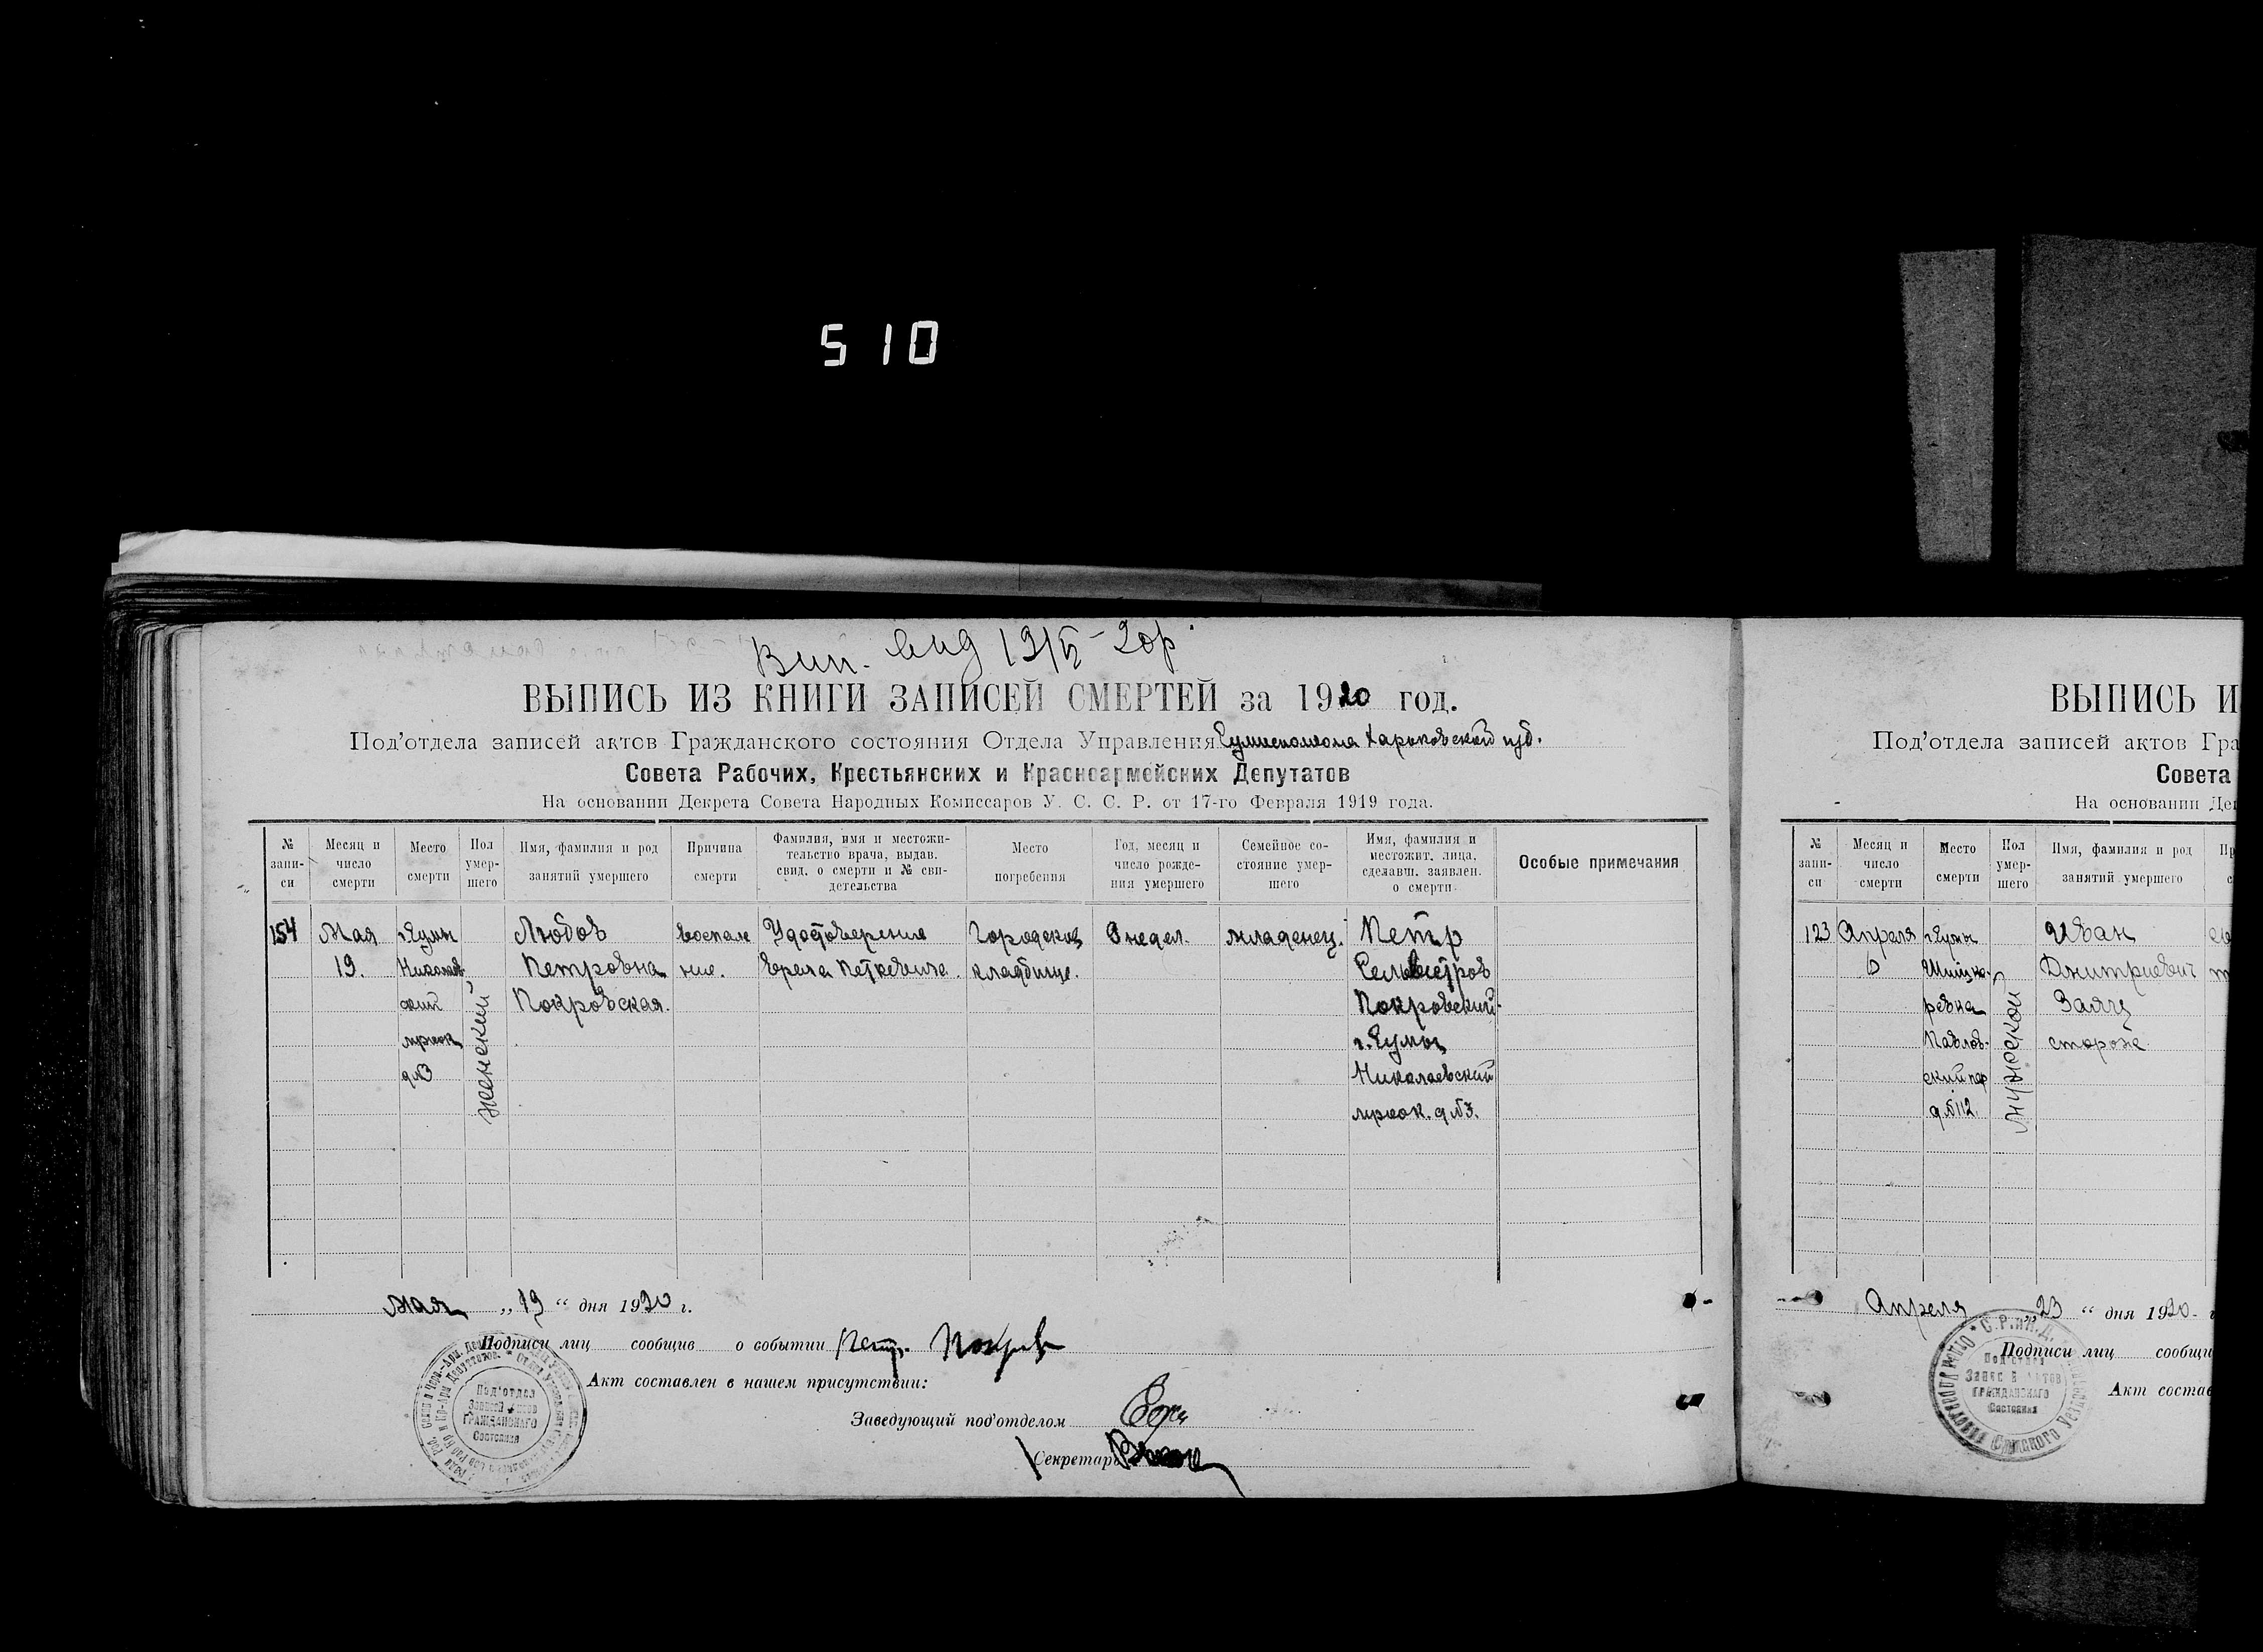 510
Вып. вид 19/V-20р
ВЫПИСЬ ИЗ КНИГИ ЗАПИСЕЙ СМЕРТЕЙ за 1920 год.
Под'отдела записей актов Гражданского состояния Отдела Управления Сумисполкома Харьковской губ.
Совета Рабочих, Крестьянских и Красноармейских Депутатов
На основании Декрета Совета Народных Комиссаров У. С. С. Р. от 17-го Февраля 1919 года.
№ записи
Месяц и число смерти
Место смерти
Пол умершего
Имя, фамилия и род занятий умершего
Причина смерти
Фамилия, имя и местожительство врача, выдав. свид. о смерти и № свидетельства
Место погребения
Год, месяц и число рождения умершего
Семейное состояние умершего
Имя, фамилия и местожит. лица, сделавш. заявлен. о смерти
Особые примечания
154
Мая
19.
г. Сумы
Николаев
ский
д №3
женский
Любовь
Петровна
Покровская.
воспале
ние.
Удостоверение
врача Петкевича.
Городское
кладбище.
недел.
младенец.
Петр
Сельвестров
Покровский.
г. Сумы
Николаевский
д. №3.
Мая „19“ дня 1920 г.
Подписи лиц сообщив о событии Петр. Покров
Акт составлен в нашем присутствии:
Заведующий под'отделом
Секретарь
Под'отдел
Записей Актов
ГРАЖДАНСКАГО
Состояния
ВЫПИСЬ И
Под'отдела записей актов Гра
Совета
На основании Де
№ записи
Месяц и число смерти
Место смерти
Пол умершего
Имя, фамилия и род занятий умершего
123
Апреля
г. Сумы
Павлов-
ский пер
д. №112.
мужской
Иван
Дмитриевич
Заяц
сторож
Апреля „23“ дня 1920
Подписи лиц сообщи
Акт состав
С.Р. и К.Д.
Под'отдел
Записей Актов
ГРАЖДАНСКАГО
Состояния